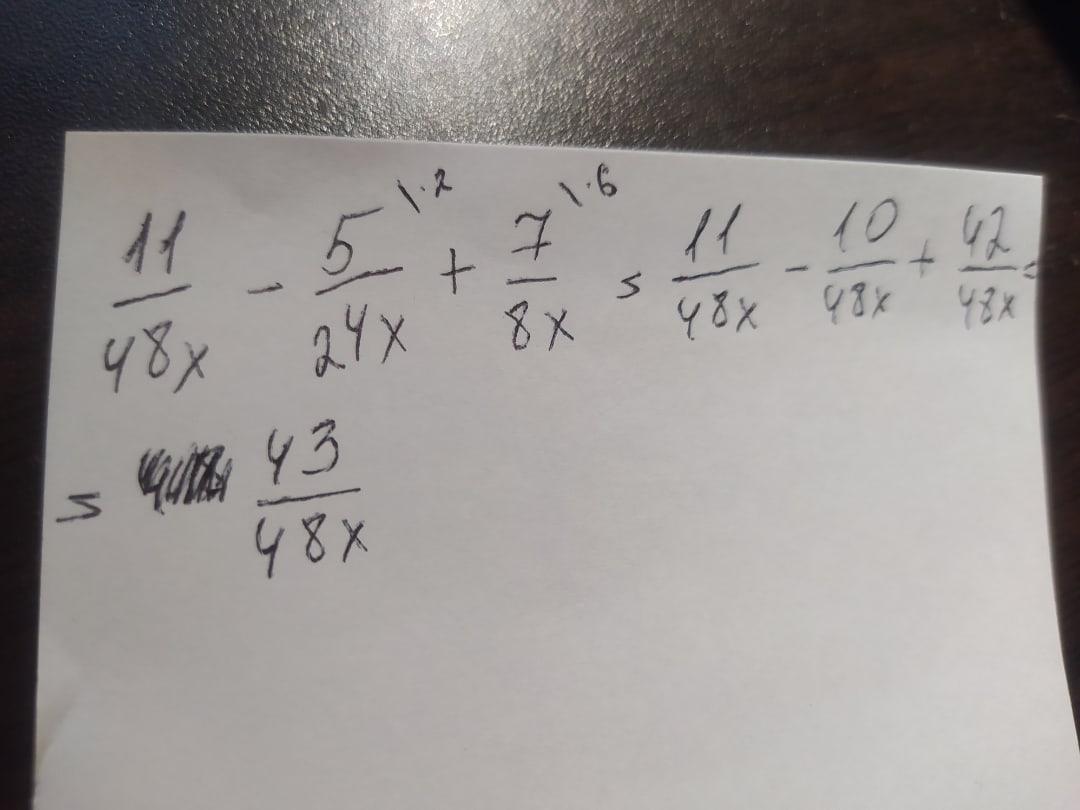 11/48x - 5\·2/24x + 7\·6/8x = 11/48x - 10/48x + 42/48x =
= 43/48x